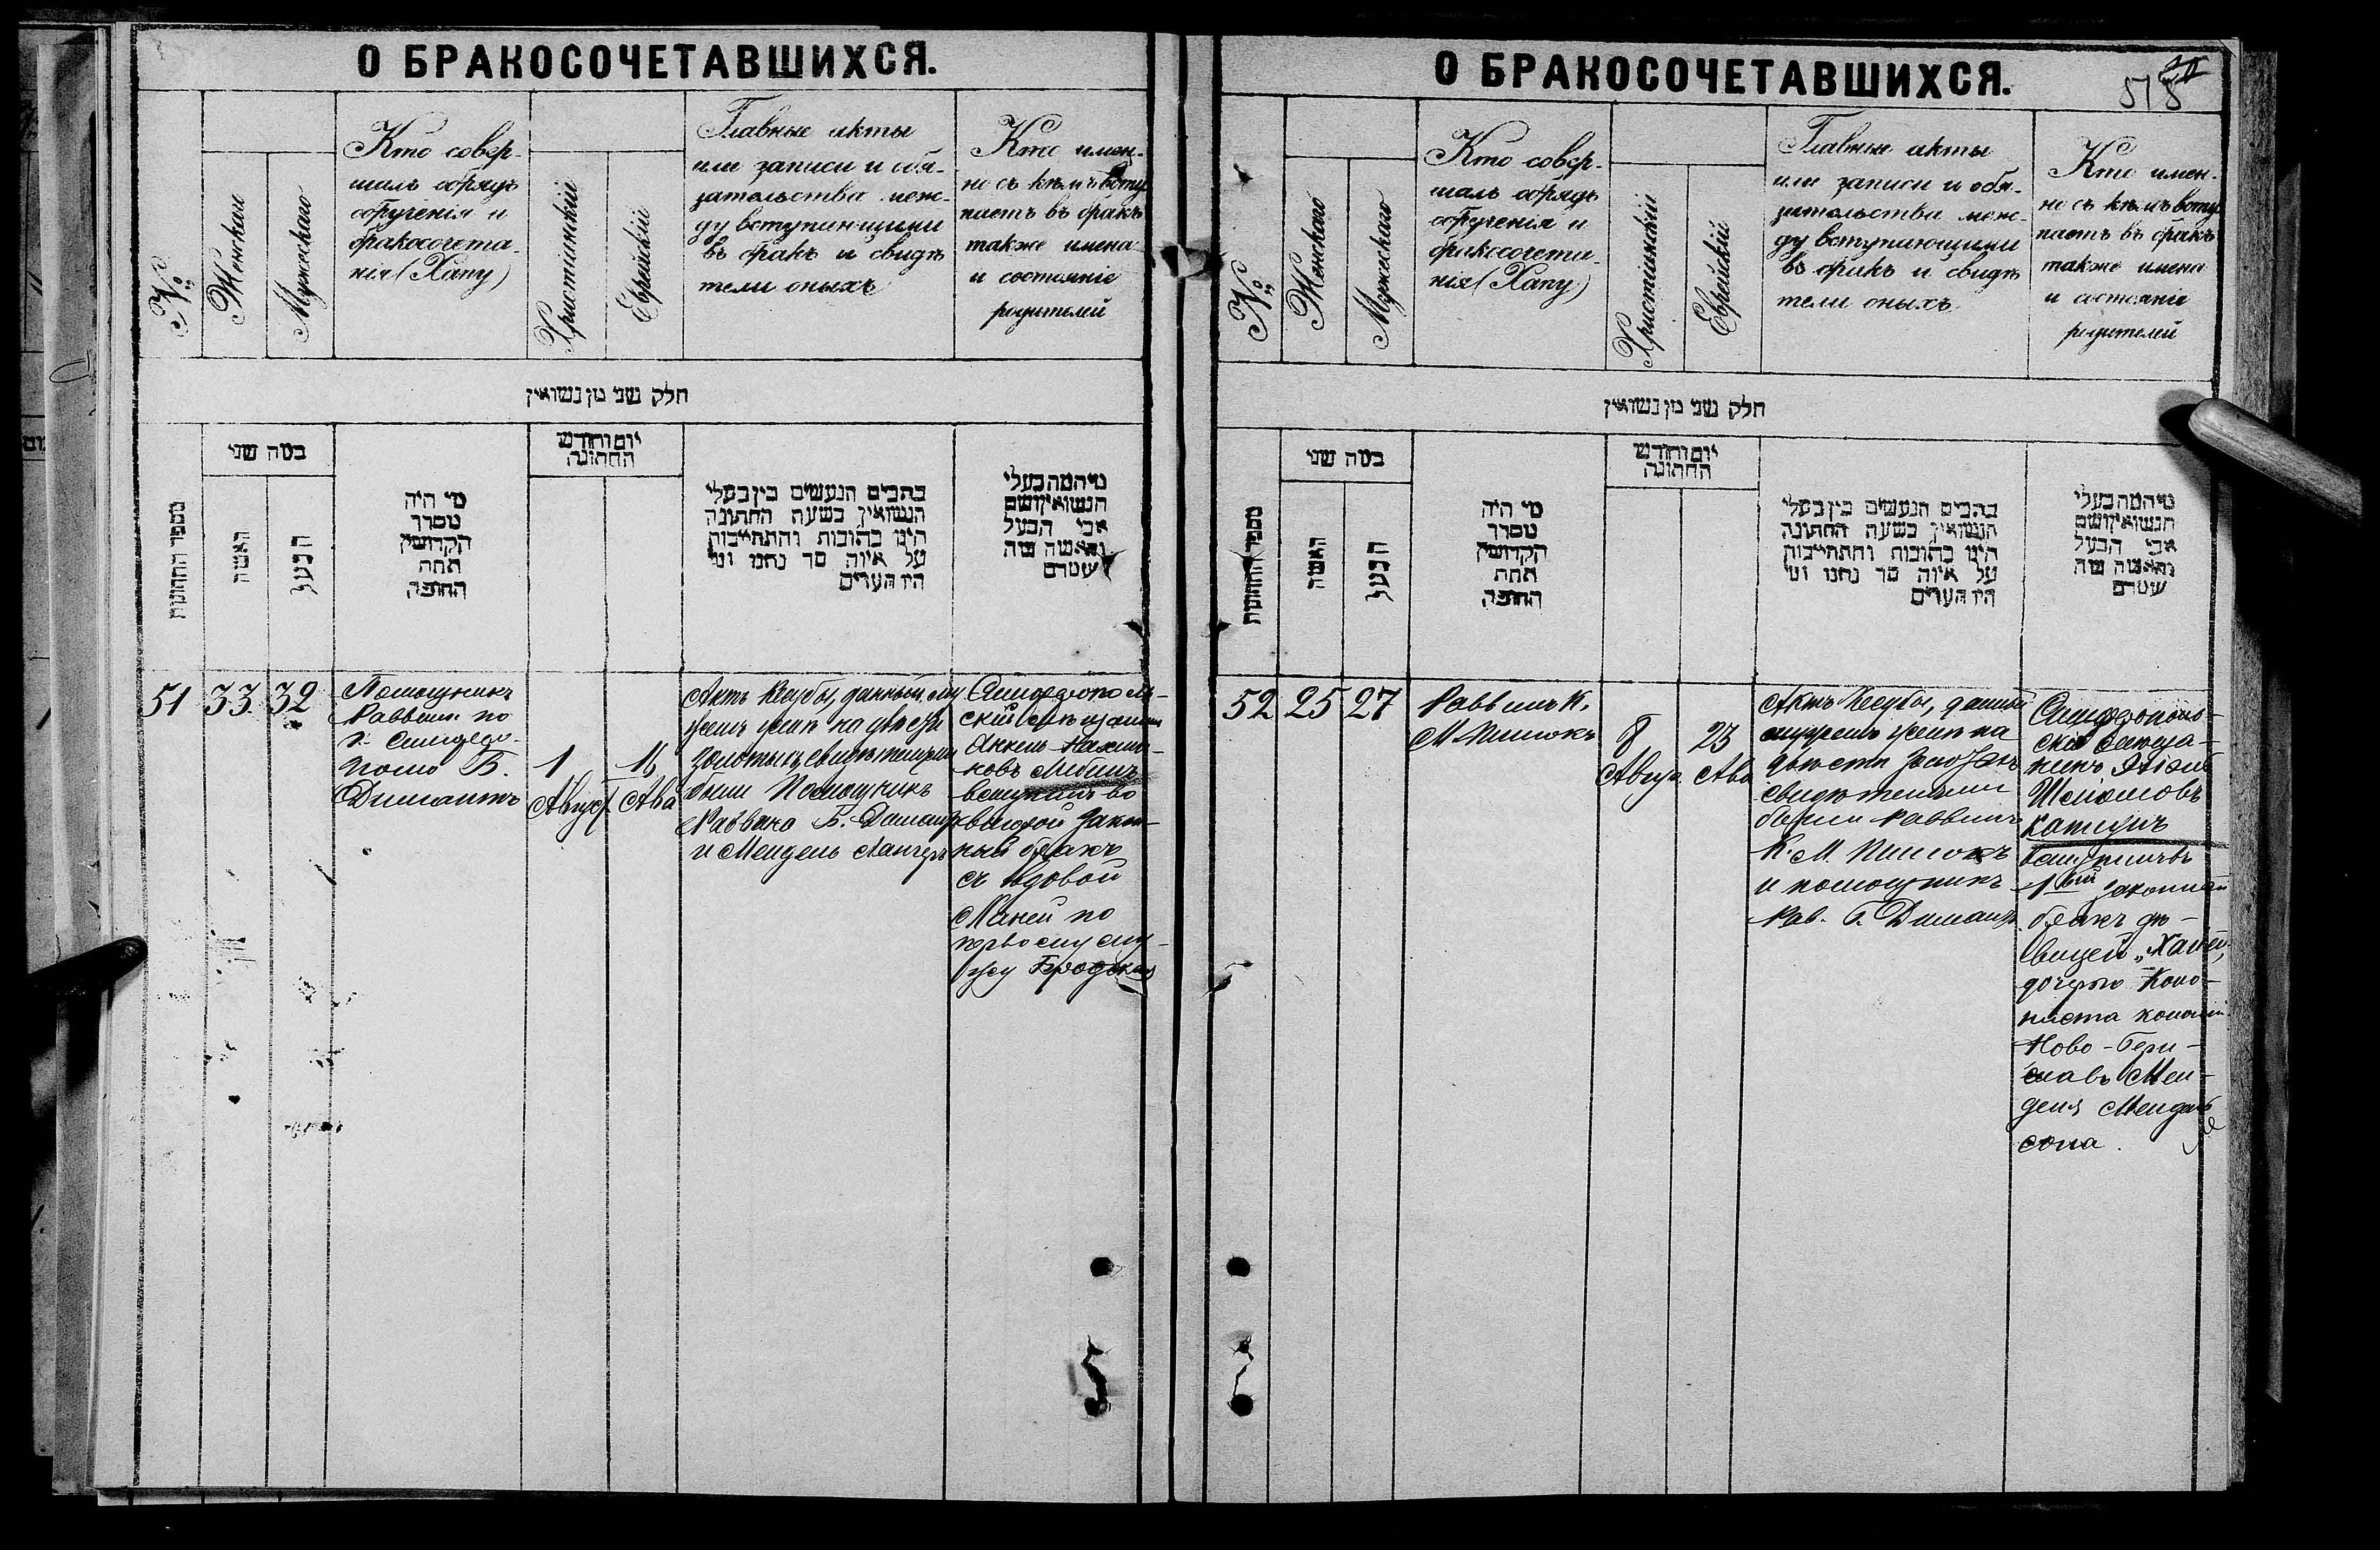 О БРАКОСОЧЕТАВШИХСЯ.
№
Женскаго
Мужескаго
Кто совер-
шалъ обрядъ
обрученія и
бракосочета-
нія (Хапу)
Христіанскій
Еврейскій
Главные акты
или записи и обя-
зательства меж-
ду вступающими
въ бракъ и свидѣ
тели оныхъ
Кто имен-
но съ кѣмъ всту
паетъ въ бракъ
также имена
и состояніе
родителей
חלק שני מן נשואין
מספר החתונות
כמה שני
האשה
הבעל
מי היה
מסדר
הקדושין
תחת
החופה
יום וחודש
החתונה
כתבים הנעשים בין בעלי
הנשואין בשעת החתונה
היינו כתובות והתחייבות
על איזה סך נתנו ומי
היו העדים
מי המה בעלי
הנשואין ושם
אבי הבעל
והאשה מה
שטרם
51
33
32
Помощникъ
Раввин. по
г. Симферо-
полю Б.
Димантъ
1
Август.
16
Ава
Актъ Кетубы, данный му
жемъ женѣ на двѣсти
золотыхъ, свидѣтелями
были Помощникъ
Раввина Б. Димантъ
и Мендель Лангеръ
Симферополь-
скій мѣщанинъ
Анкель Нахим-
новъ Либинъ
вступилъ во
второй закон-
ный бракъ
съ вдовой
Маней по
первому му-
жу Бродская
О БРАКОСОЧЕТАВШИХСЯ.
518
№
Женскаго
Мужескаго
Кто совер-
шалъ обрядъ
обрученія и
бракосочета-
нія (Хапу)
Христіанскій
Еврейскій
Главные акты
или записи и обя-
зательства меж-
ду вступающими
въ бракъ и свидѣ
тели оныхъ
Кто имен-
но съ кѣмъ всту
паетъ въ бракъ
также имена
и состояніе
родителей
חלק שני מן נשואין
מספר החתונות
כמה שני
האשה
הבעל
מי היה
מסדר
הקדושין
תחת
החופה
יום וחודש
החתונה
כתבים הנעשים בין בעלי
הנשואין בשעת החתונה
היינו כתובות והתחייבות
על איזה סך נתנו ומי
היו העדים
מי המה בעלי
הנשואין ושם
אבי הבעל
והאשה מה
שטרם
52
25
27
Раввинъ К.
М.
8
Авгус.
23
Ава
Актъ Кетубы, данный
мужемъ женѣ на
двѣсти золотыхъ
свидѣтелями
были Раввинъ
К. М.
и помощникъ
Рав. Б. Димантъ
Симферополь-
скій мѣща-
нинъ
Шоломовъ
Кацинъ
вступилъ въ
1вый законный
бракъ дѣ-
вицей „Ханей,
дочерью Коло-
ниста колоніи
Ново-Бери-
славъ Мен-
деля Мендель
сона.